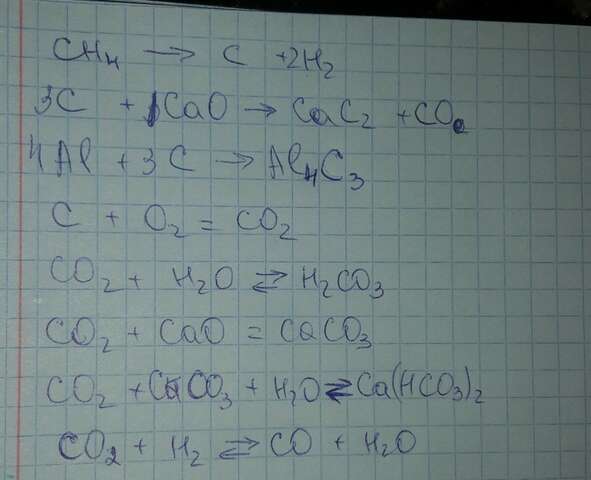 CH₄ → C + 2H₂
3C + CaO → CaC₂ + CO
4Al + 3C → Al₄C₃
C + O₂ = CO₂
CO₂ + H₂O ⇄ H₂CO₃
CO₂ + CaO = CaCO₃
CO₂ + CaCO₃ + H₂O ⇄ Ca(HCO₃)₂
CO₂ + H₂ ⇄ CO + H₂O